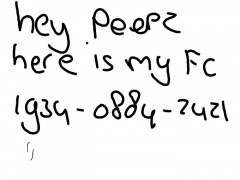 hey peepz
here is my FC
1934-0884-2421